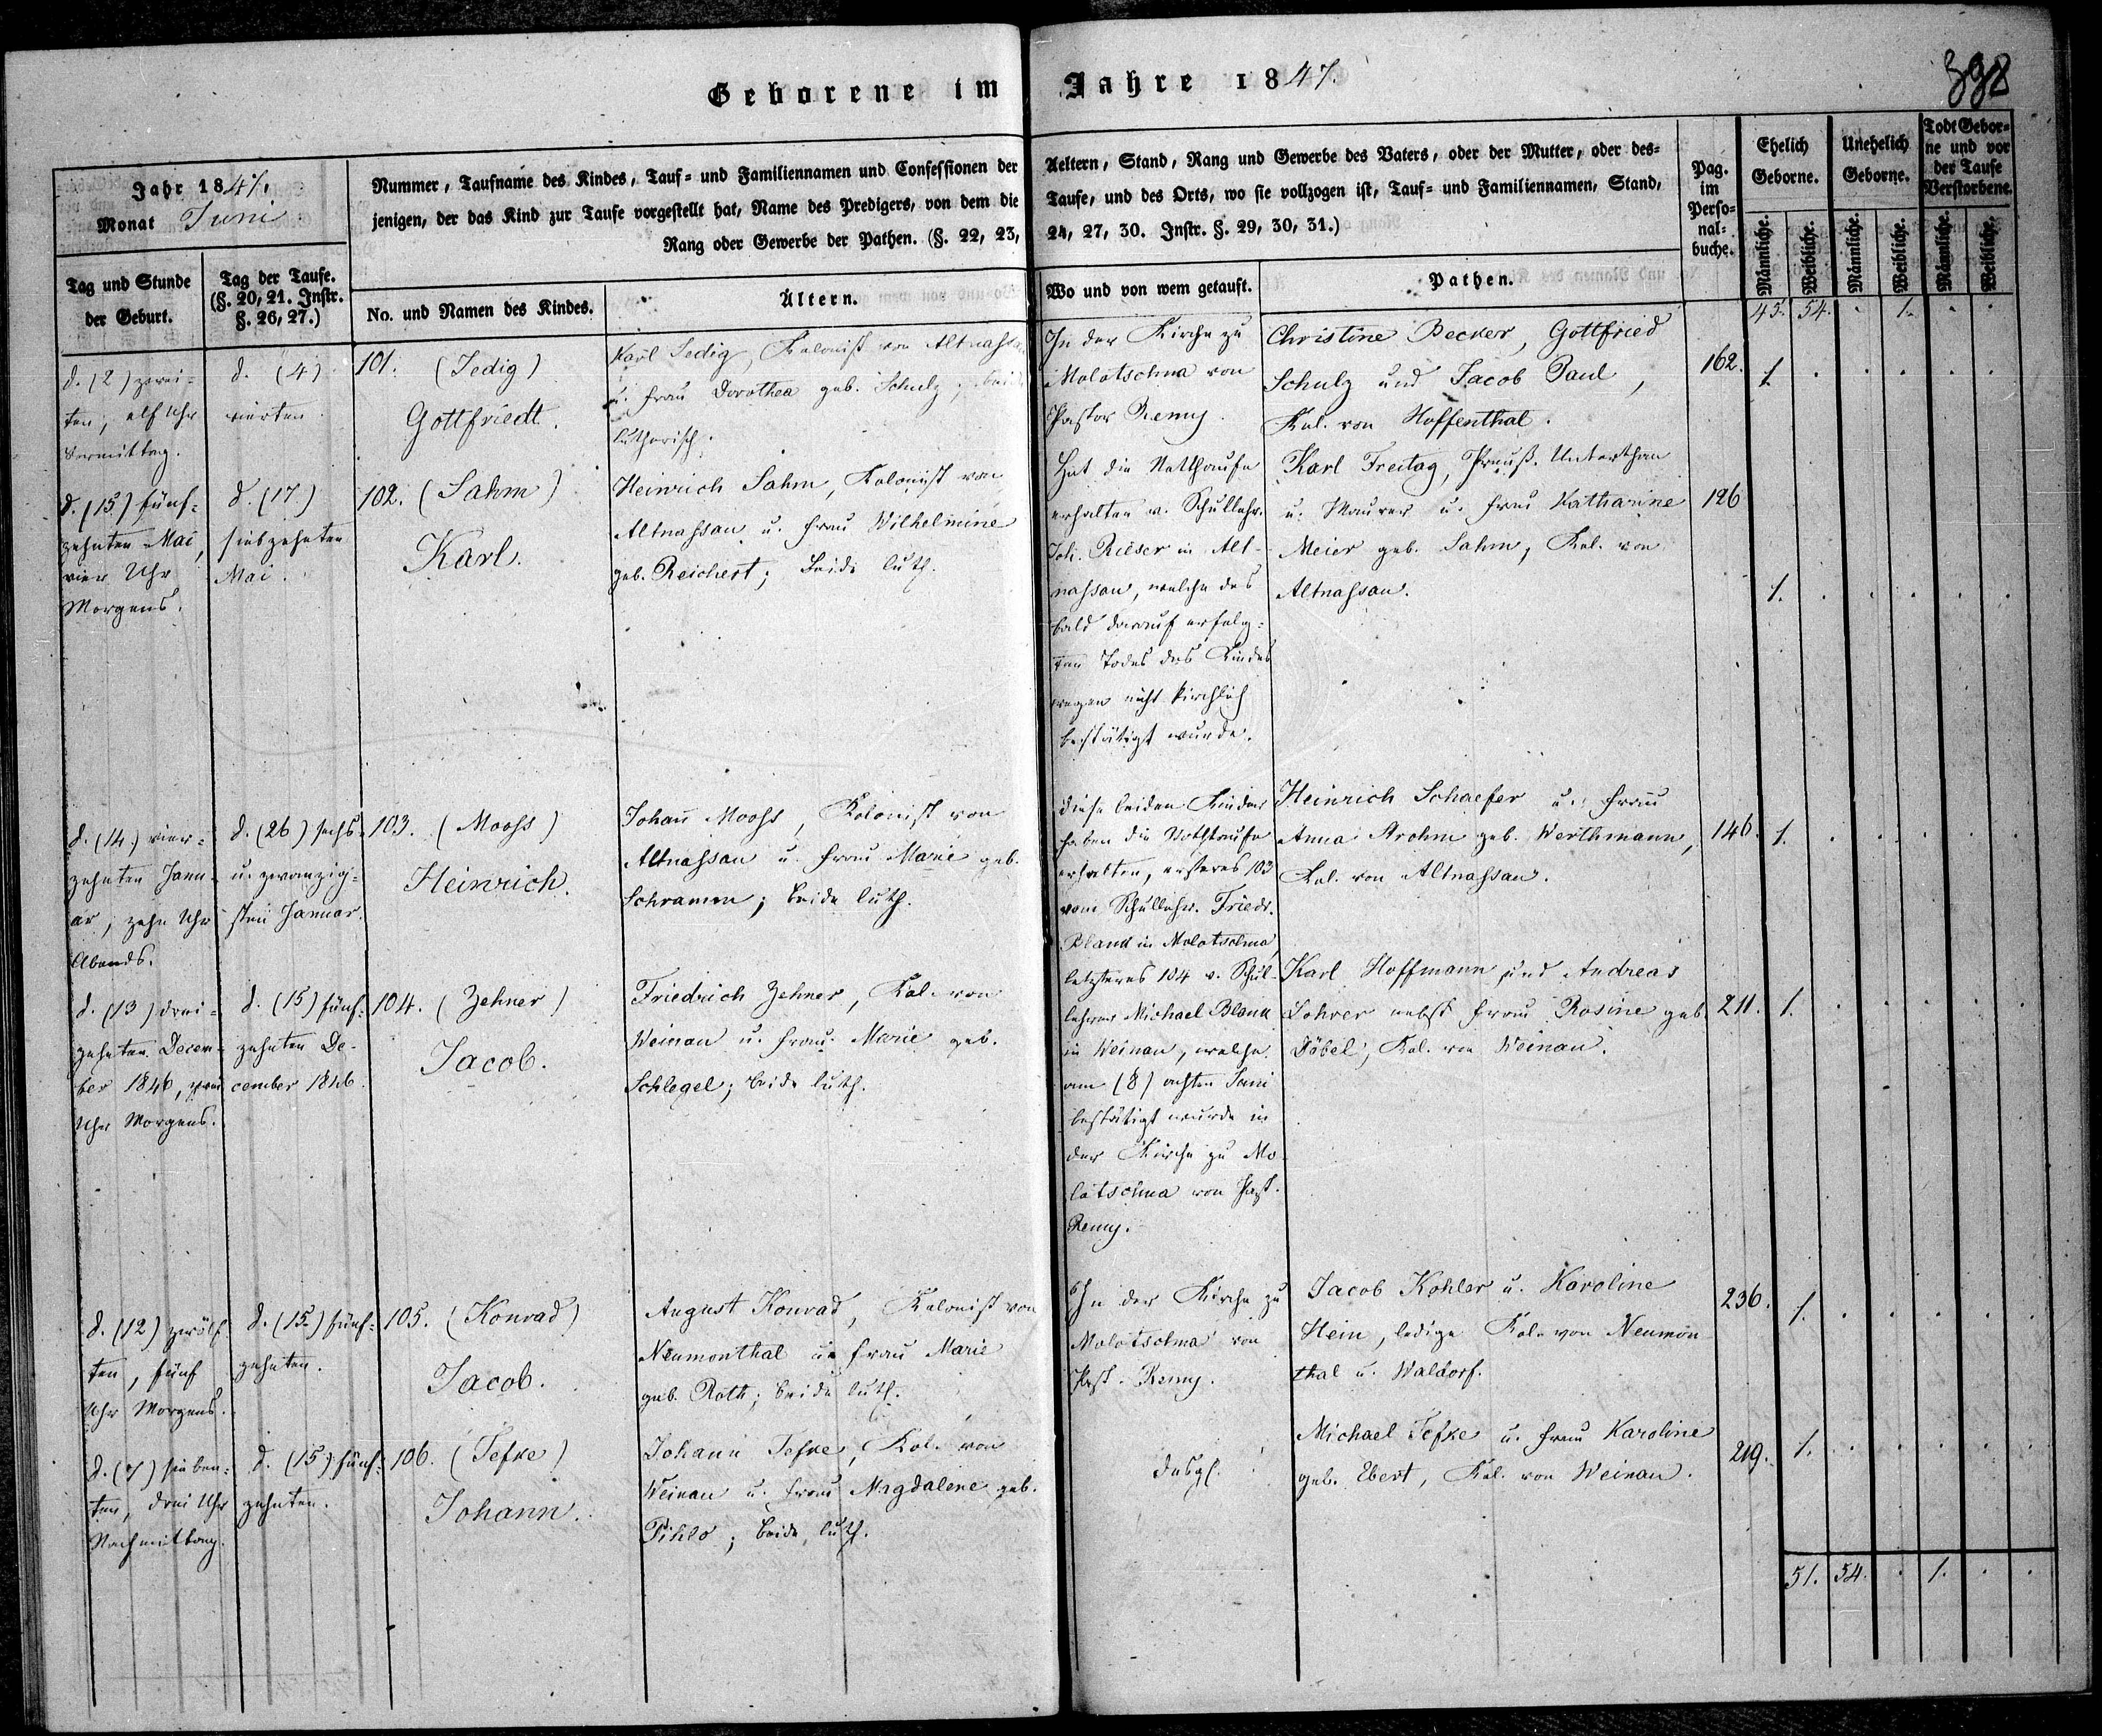 Geborene im Jahre 1847.
338
Jahr 1847.
Monat Juni
Nummer, Taufname des Kindes, Tauf- und Familiennamen und Confessionen der Aeltern, Stand, Rang und Gewerbe des Vaters, oder der Mutter, oder des-
jenigen, der das Kind zur Taufe vorgestellt hat, Name des Predigers, von dem die Taufe, und des Orts, wo sie vollzogen ist, Tauf- und Familiennamen, Stand,
Rang oder Gewerbe der Pathen. (§. 22, 23, 24, 27, 30. Instr. §. 29, 30, 31.)
Pag.
im
Perso-
nal-
buche.
Ehelich
Geborne.
Unehelich
Geborne.
Todt Gebor-
ne und vor
der Taufe
Verstorbene.
Männliche.
Weibliche.
Männliche.
Weibliche.
Männliche.
Weibliche.
Tag und Stunde
der Geburt.
Tag der Taufe.
(§. 20, 21. Instr.
§. 26, 27.)
No. und Namen des Kindes.
Ältern.
Wo und von wem getauft.
Pathen.
45. 54. . 1. . .
d. (2) zwei-
ten, elf Uhr
Vormittag.
d. (4)
vierten
101. (Jedig)
Gottfriedt.
Karl Jedig, Kolonist von Altnassau
u. Frau Dorothea geb. Schulz; beide
lutherisch.
In der Kirche zu
Molotschna von
Pastor Remy.
Christine Becker, Gottfried
Schulz und Jacob Paul,
Kol. von Hoffenthal.
162. 1. . . . . .
d. (15) fünf-
zehnten Mai,
vier Uhr
Morgens.
d. (17)
siebzehnten
Mai.
102. (Sahm)
Karl.
Heinrich Sahm, Kolonist von
Altnassau u. Frau Wilhelmine
geb. Reichert; Beide luth.
Hat die Nothtaufe
erhalten v. Schullehr.
Joh. Rieser in Alt-
nassau, welche des
bald darauf erfolg-
ten Todes des Kindes
wegen nicht kirchlich
bestätigt wurde.
Karl Freitag, Preuß. Unterthan
u. Maurer u. Frau Katharine
Meier geb. Sahm, Kol. von
Altnassau.
126
1. . . . . .
d. (14) vier-
zehnten Janu-
ar, zehn Uhr
Abends.
d. (26) sechs-
u. zwanzig-
sten Januar.
103. (Mooss)
Heinrich.
Johann Mooss, Kolonist von
Altnassau u. Frau Marie geb.
Schramm; beide luth.
Diese beiden Kinder
haben die Nothtaufe
erhalten, ersteres 103
vom Schullehr. Friedr.
Blank in Molotschna,
letzteres 104 v. Schul-
lehrer Michael Blank
in Weinau, welche
am (8) achten Juni
bestätigt wurde in
der Kirche zu Mo-
lotschna von Past.
Remy.
Heinrich Schaefer u. Frau
Anna Strohm geb. Werthmann,
Kol. von Altnassau.
146. 1. . . . . .
d. (13) drei-
zehnten Decem-
ber 1846, zwei
Uhr Morgens.
d. (15) fünf-
zehnten De-
cember 1846.
104. (Zehner)
Jacob.
Friedrich Zehner, Kol. von
Weinau u. Frau Marie geb.
Schlegel; beide luth.
Karl Hoffmann und Andreas
Lohrer nebst Frau Rosine geb.
Döbel, Kol. von Weinau.
211. 1. . . . . .
d. (12) zwölf-
ten, fünf
Uhr Morgens.
d. (15) fünf-
zehnten.
105. (Konrad)
Jacob.
August Konrad, Kolonist von
Neumonthal u. Frau Marie
geb. Roth; beide luth.
In der Kirche zu
Molotschna von
Past. Remy.
Jacob Kohler u. Karoline
Hein, ledige Kol. von Neumon-
thal u. Waldorf.
236. 1. . . . . .
d. (7) sieben-
ten, drei Uhr
Nachmittag.
d. (15) fünf-
zehnten.
106. (Tefke)
Johann.
Johann Tefke, Kol. von
Weinau u. Frau Magdalene geb.
Pihlo; beide luth.
desgl.
Michael Tefke u. Frau Karoline
geb. Ebert, Kol. von Weinau.
219. 1. . . . . .
51. 54. . 1. . .